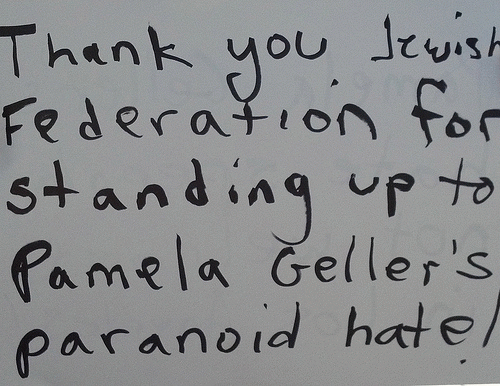 Thank you Jewish
Federation for
standing up to
Pamela Geller's
paranoid hate!